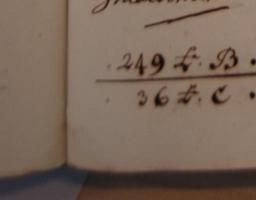 249 ℔. B.
36 ℔. C.